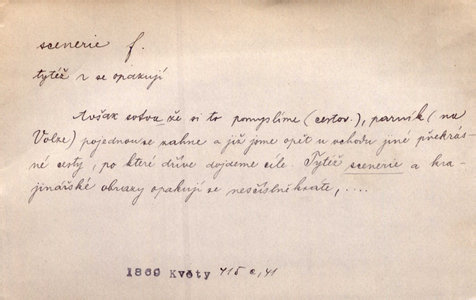 scenerie f.
tytéž s se opakují
Avšak sotva že si to pomyslíme (cestov.), parník (na
Volze) pojednou se zahne a již jsme opět u vchodu jiné překrás-
né cesty, po které dříve dojdeme cíle. Tytéž scenerie a kra-
jinářské obrazy opakují se nesčíslněkráte, ....
1869 Květy 715 a, 41